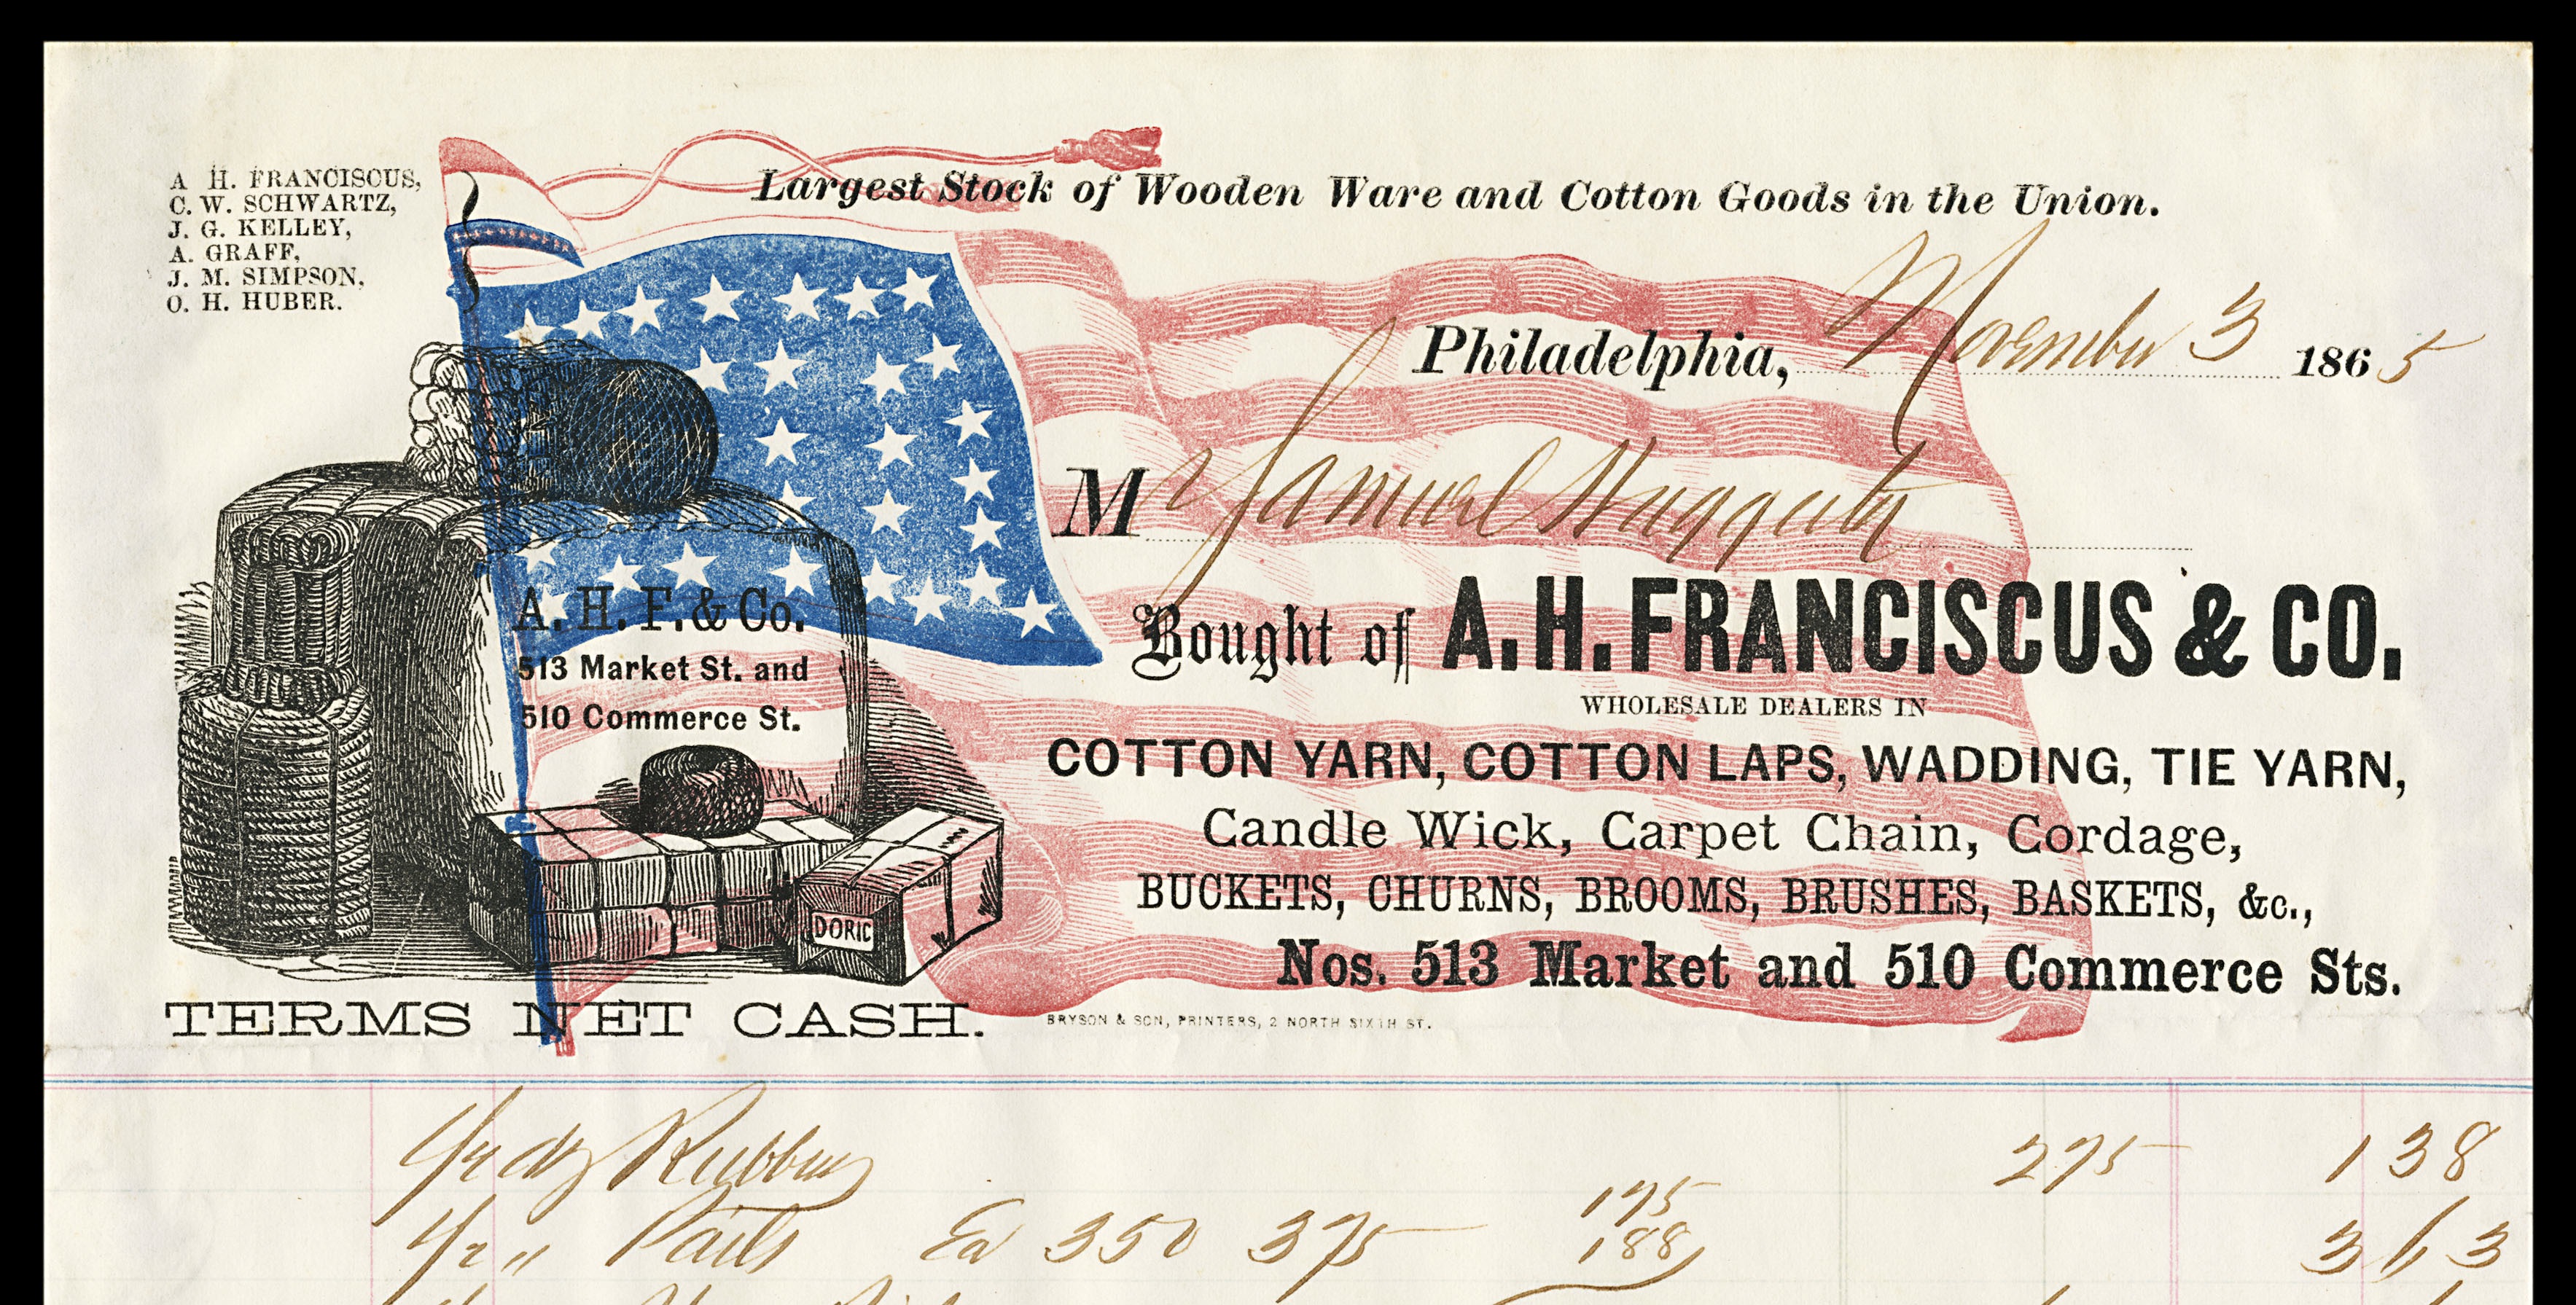 A H. FRANCISCUS,
C. W. SCHWARTZ,
J. G. KELLEY,
A. GRAFF,
J. M. SIMPSON,
O. H. HUBER.
Largest Stock of Wooden Ware and Cotton Goods in the Union.
Philadelphia, November 3 1865
M Samuel
Bought of A. H. FRANCISCUS & CO.
WHOLESALE DEALERS IN
COTTON YARN, COTTON LAPS, WADDING, TIE YARN,
Candle Wick, Carpet Chain, Cordage,
BUCKETS, CHURNS, BROOMS, BRUSHES, BASKETS, &c.,
Nos. 513 Market and 510 Commerce Sts.
A. H. F. & Co.
513 Market St. and
510 Commerce St.
DORIC
TERMS NET CASH.
BRYSON & SON, PRINTERS, 2 NORTH SIXTH ST.
1/2 dz Rubbers 275 138
175
1/2 " Pails Ea 350 375 188 363